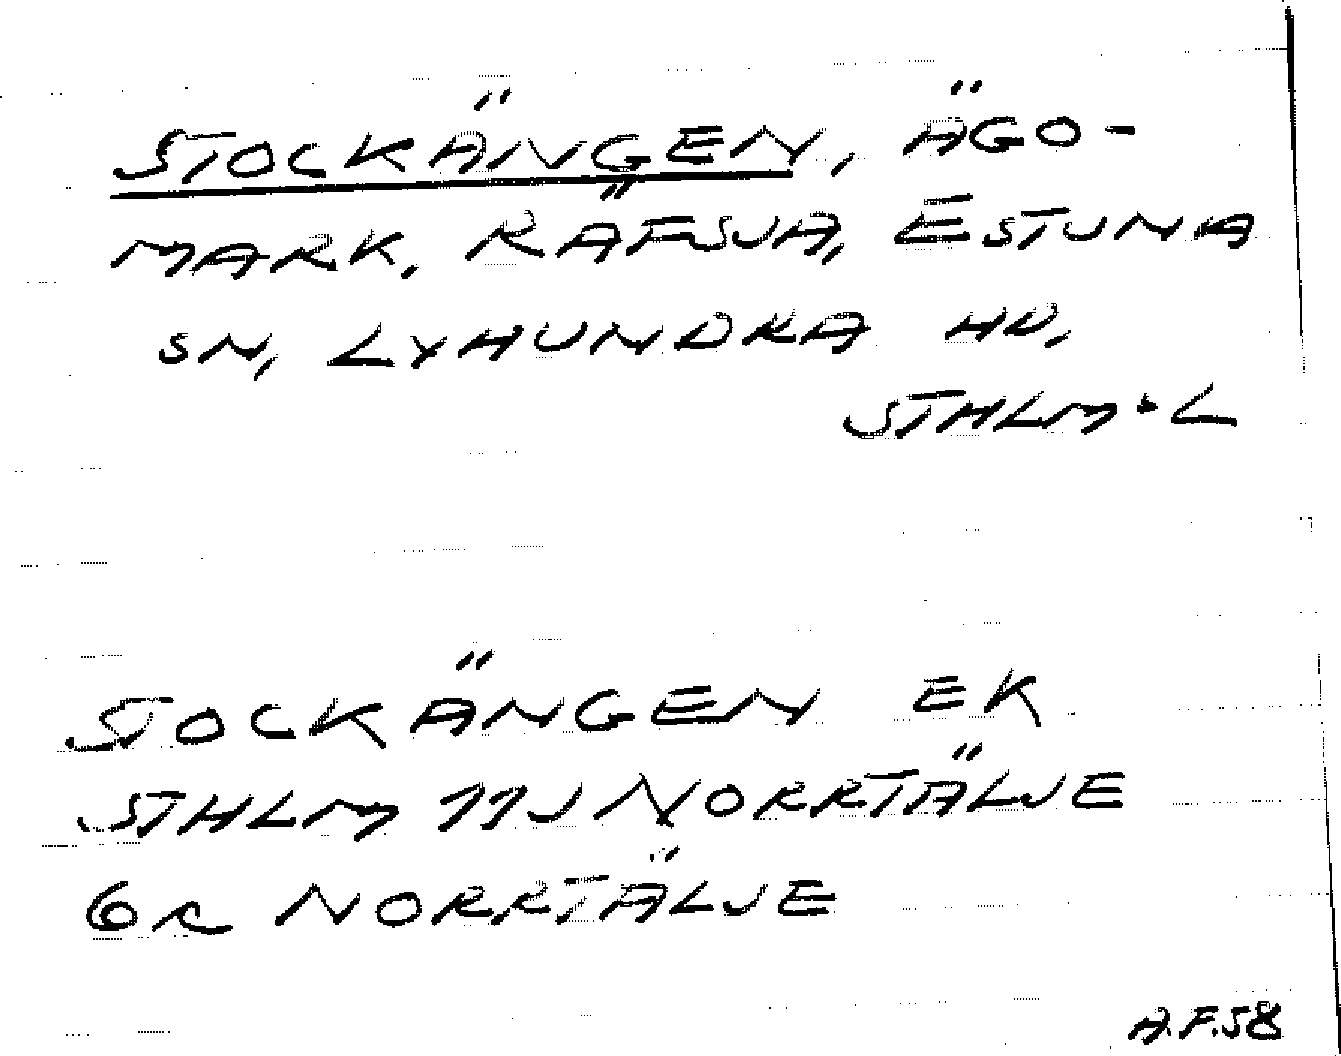 STOCKÄNGEN, ÄGO-
MARK, RÄFSJA, ESTUNA
SN, LYHUNDRA HD,
STHLM·L
STOCKÄNGEN EK
STHLM 11J NORRTÄLJE
6c NORRTÄLJE
A.F.58